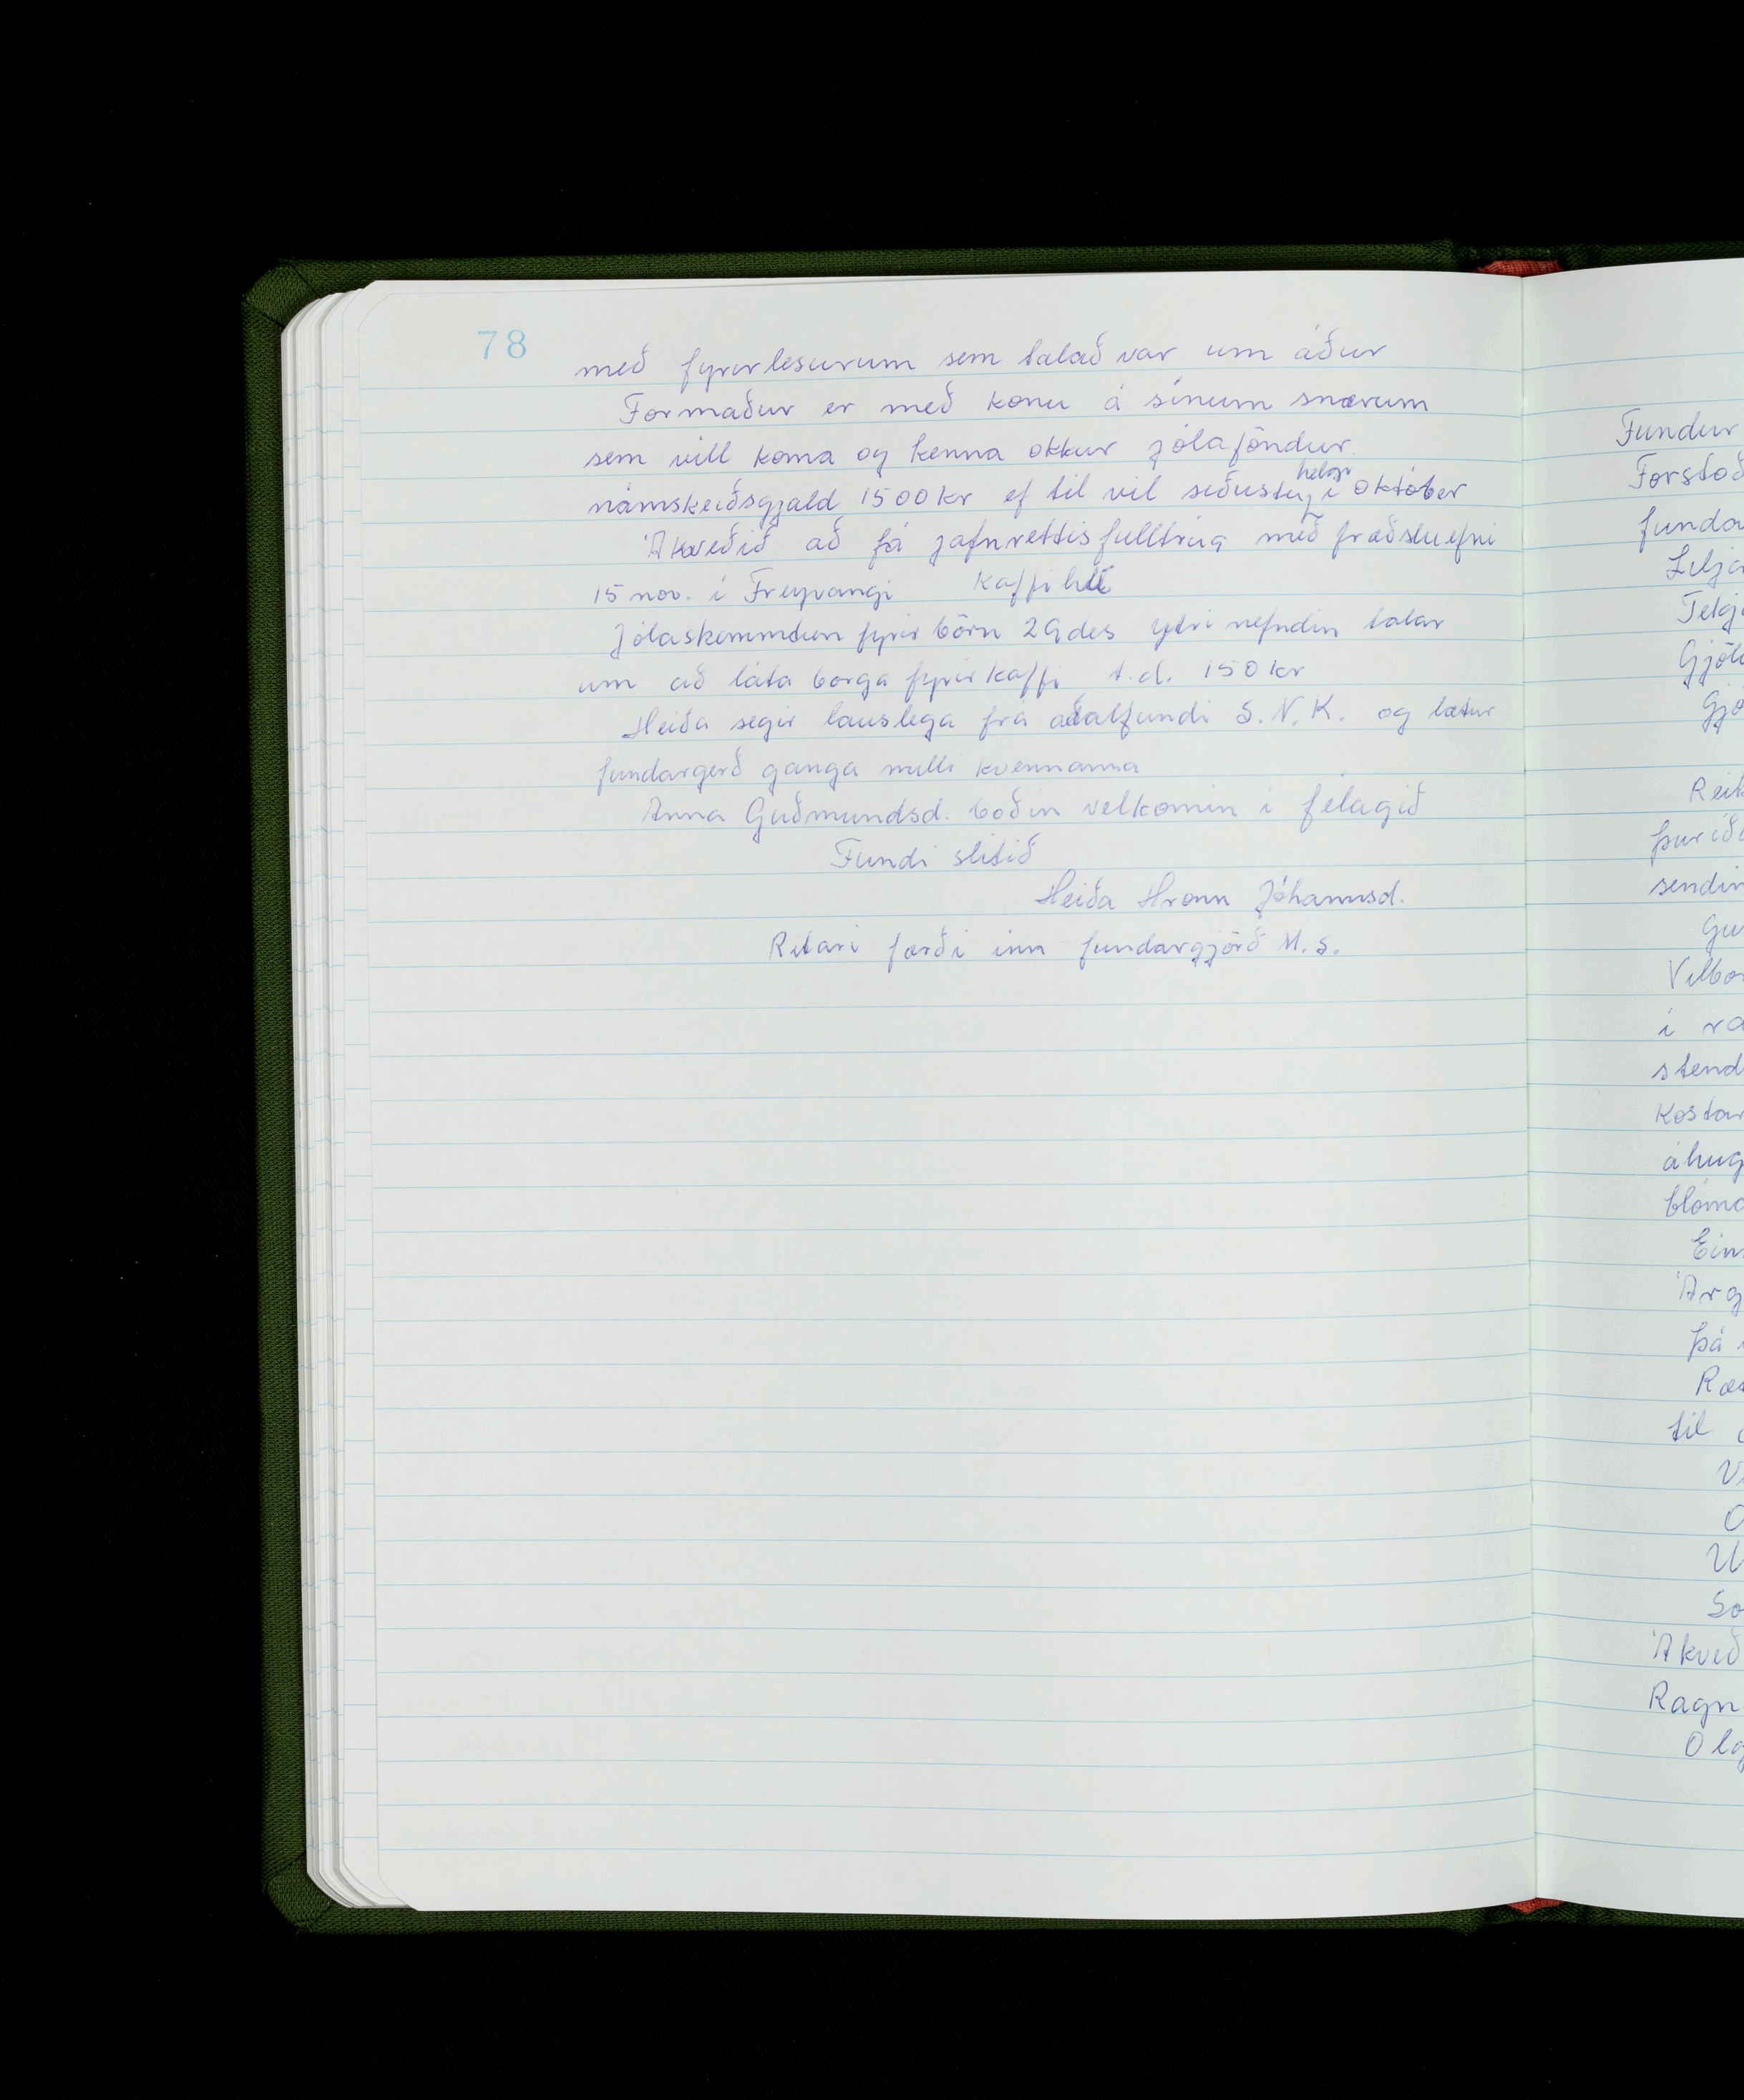 78
með fyrirlesurum sem talað var um áður
Formaður er með konu á sínum snærum
sem vill koma og kenna okkur jólaföndur
námskeiðsgjald 1500 kr ef til vil síðustu helgi í október
Ákveðið að fá jafnréttisfulltrúa með fræðsluefni
15 nov. í Freyvangi kaffihlé
Jólaskemmtun fyrir börn 29 des ytri nefndin talar
um að láta borga fyrir kaffi t.d. 150 kr
Heiða segir lauslega frá aðalfundi S.N.K. og lætur
fundargerð ganga milli kvennanna
Anna Guðmundsd. boðin velkomin í félagið
Fundi slitið
Heiða Hrönn Jóhannsd.
Ritari færði inn fundargjörð M.S.
Fundur
Forstöð
funda
Lilja
Tekj
Gjöl
Gjö
Reik
Þuríð
sendin
Gu
Vilbo
í
stend
kostar
áhug
blóma
Ein
Árg
Þá
Ræ
til
So
Ákveð
Ragn
Olg